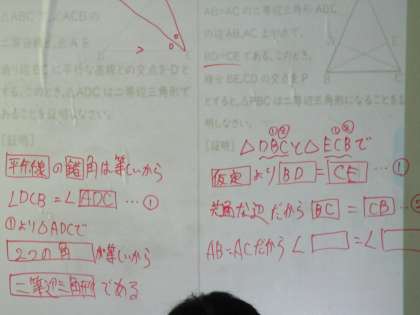 △ABCで、∠ACBの
二等分線と、点Aを
通り辺BCに平行な直線との交点をDと
する。このとき、△ADCは二等辺三角形で
あることを証明しなさい。
[証明]
平行線の錯角は等しいから
∠DCB=∠ADC …①
①より△ADCで
2つの角が等しいから
二等辺三角形である
AB=ACの二等辺三角形ABC
の辺AB,AC上に
BD=CEである。このとき、
線分BE,CDの交点をP
とすると、△PBCは二等辺三角形になることを証
明しなさい。
A
B
[証明]
①② ①②
△DBCと△ECBで
仮定よりBD=CE …①
共通な辺だからBC=CB …②
AB=ACだから∠ =∠